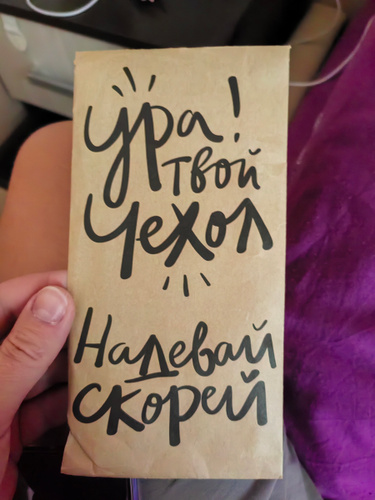 Ура!
твой
Чехол
Надевай
скорей